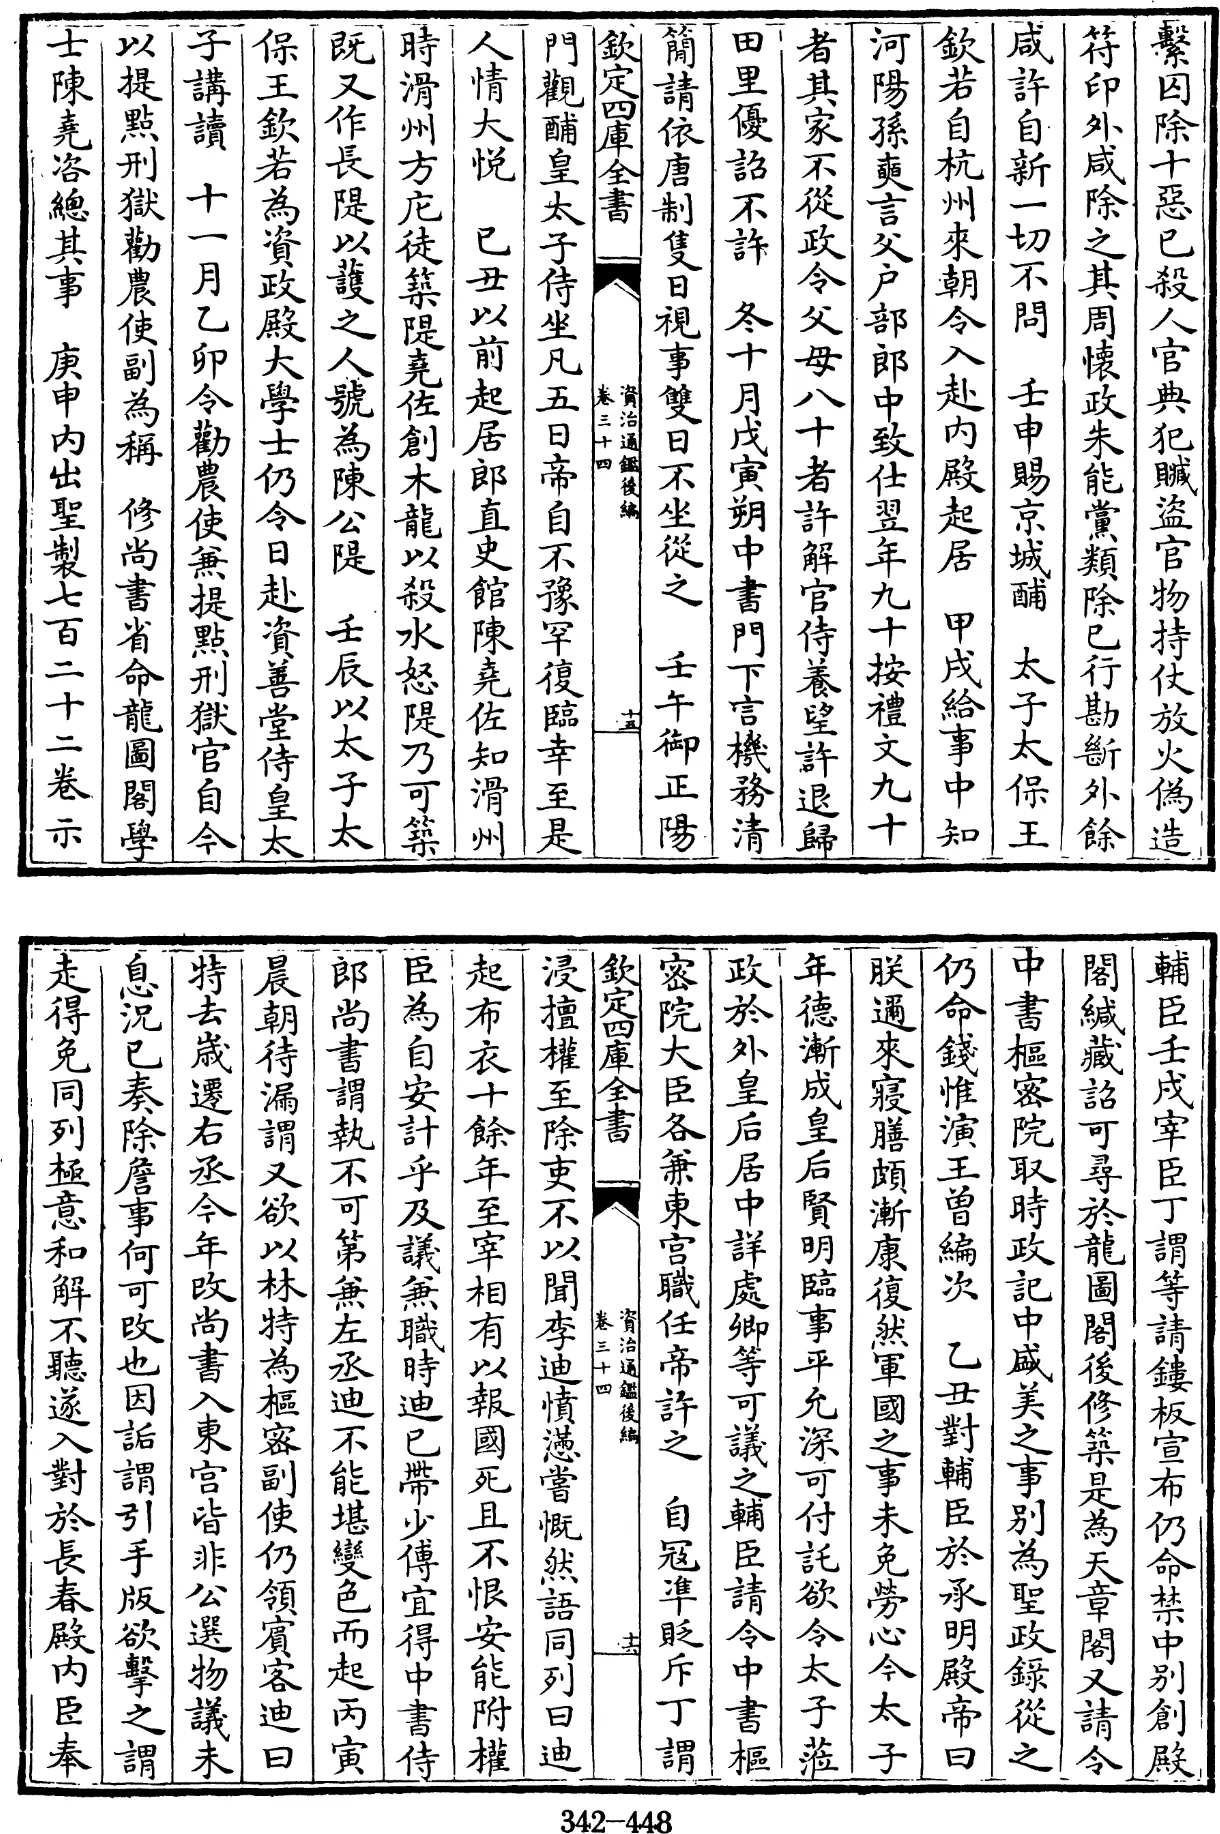 繫囚除十惡已殺人官典犯贓盜官物持仗放火偽造
符印外咸除之其周懷政朱能黨類除已行勘斷外餘
咸許自新一切不問　壬申賜京城酺　太子太保王
欽若自杭州來朝令入赴內殿起居　甲戌給事中知
河陽孫奭言父戶部郎中致仕翌年九十按禮文九十
者其家不從政令父母八十者許解官侍養望許退歸
田里優詔不許　冬十月戊寅朔中書門下言機務清
簡請依唐制隻日視事雙日不坐從之　壬午御正陽
欽定四庫全書　資治通鑑後編卷三十四　十五
門觀酺皇太子侍坐凡五日帝自不豫罕復臨幸至是
人情大悅　已丑以前起居郎直史館陳堯佐知滑州
時滑州方庀徒築隄堯佐創木龍以殺水怒隄乃可築
既又作長隄以䕶之人號為陳公隄　壬辰以太子太
保王欽若為資政殿大學士仍令日赴資善堂侍皇太
子講讀　十一月乙卯令勸農使兼提點刑獄官自今
以提點刑獄勸農使副為稱　修尚書省命龍圖閣學
士陳堯咨總其事　庚申內出聖製七百二十二卷示
輔臣壬戌宰臣丁謂等請鏤板宣布仍命禁中別創殿
閣緘藏詔可尋於龍圖閣後修築是為天章閣又請令
中書樞密院取時政記中盛美之事別為聖政錄從之
仍命錢惟演王曾編次　乙丑對輔臣於承明殿帝曰
朕邇來寢膳頗漸康復然軍國之事未免勞心今太子
年德漸成皇后賢明臨事平允深可付託欲令太子蒞
政於外皇后居中詳處卿等可議之輔臣請令中書樞
密院大臣各兼東宮職任帝許之　自寇準貶斥丁謂
欽定四庫全書　資治通鑑後編卷三十四　十六
浸擅權至除吏不以聞李迪憤懣嘗慨然語同列曰迪
起布衣十餘年至宰相有以報國死且不恨安能附權
臣為自安計乎及議兼職時迪已帶少傅宜得中書侍
郎尚書謂執不可第兼左丞迪不能堪變色而起丙寅
晨朝待漏謂又欲以林特為樞密副使仍領賓客迪曰
特去歲遷右丞今年改尚書入東宮皆非公選物議未
息況已奏除詹事何可改也因詬謂引手版欲擊之謂
走得免同列極意和解不聽遂入對於長春殿內臣奉
342-448